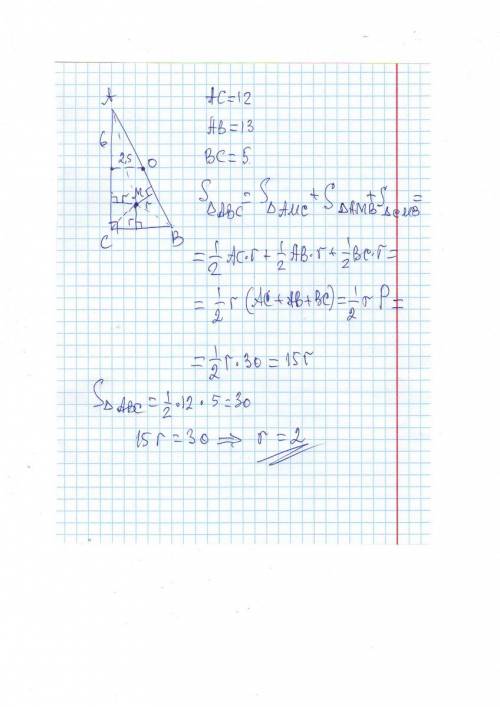 A
6
2,5
O
r
M
r
r
C
B
AC=12
AB=13
BC=5
S△ABC = S△AMC + S△AMB + S△CMB =
= 1/2 AC·r + 1/2 AB·r + 1/2 BC·r =
= 1/2 r (AC+AB+BC) = 1/2 r P =
= 1/2 r · 30 = 15r
S△ABC = 1/2 · 12 · 5 = 30
15r = 30 ⇒ r = 2